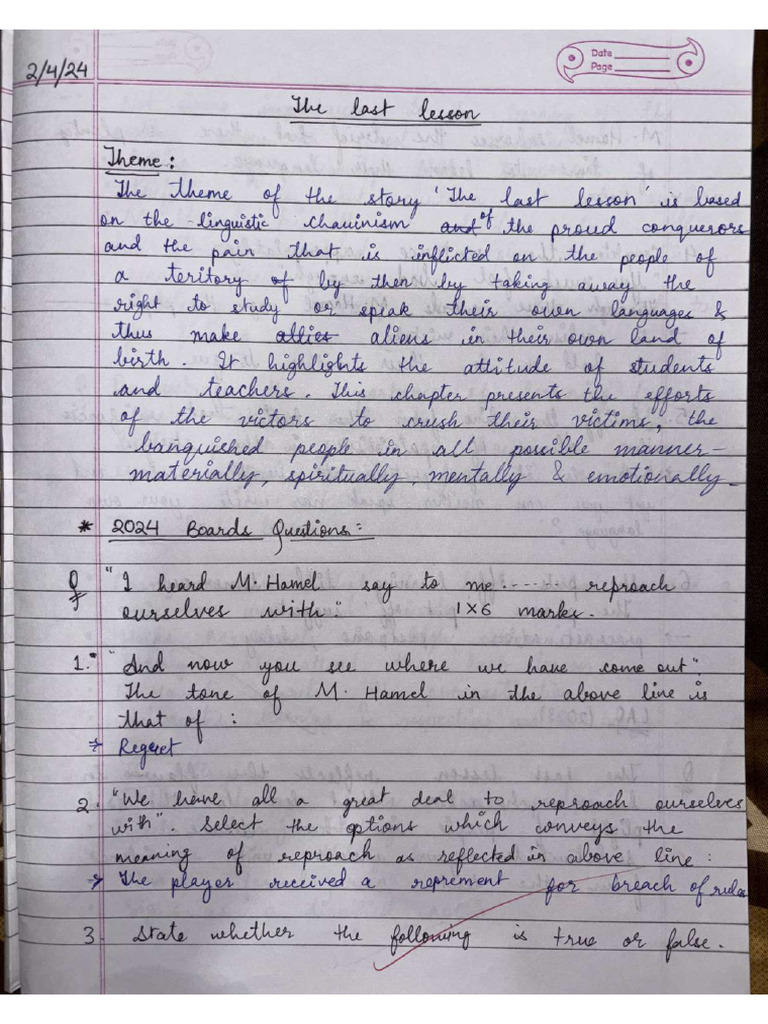 Date
Page
2/4/24
The last lesson
Theme:
The theme of the story 'The last lesson' is based
on the linguistic chauinism and of the proud conquerors
and the pain that is inflicted on the people of
a teritory of by then by taking away the
right to study or speak their own languages &
thus make allies aliens in their own land of
birth. It highlights the attitude of students
and teachers. This chapter presents the efforts
of the victors to crush their victims, the
banguished people in all possible manner-
materially, spiritually, mentally & emotionally.
* 2024 Boards Questions:
Q "I heard M. Hamel say to me ...... reproach
ourselves with". 1×6 marks.
1. "And now you see where we have come out"
The tone of M. Hamel in the above line is
that of :
→ Regret
2. "We have all a great deal to reproach ourselves
with". Select the options which conveys the
meaning of reproach as reflected in above line:
→ The player received a reprement for breach of rules
3. State whether the following is true or false.